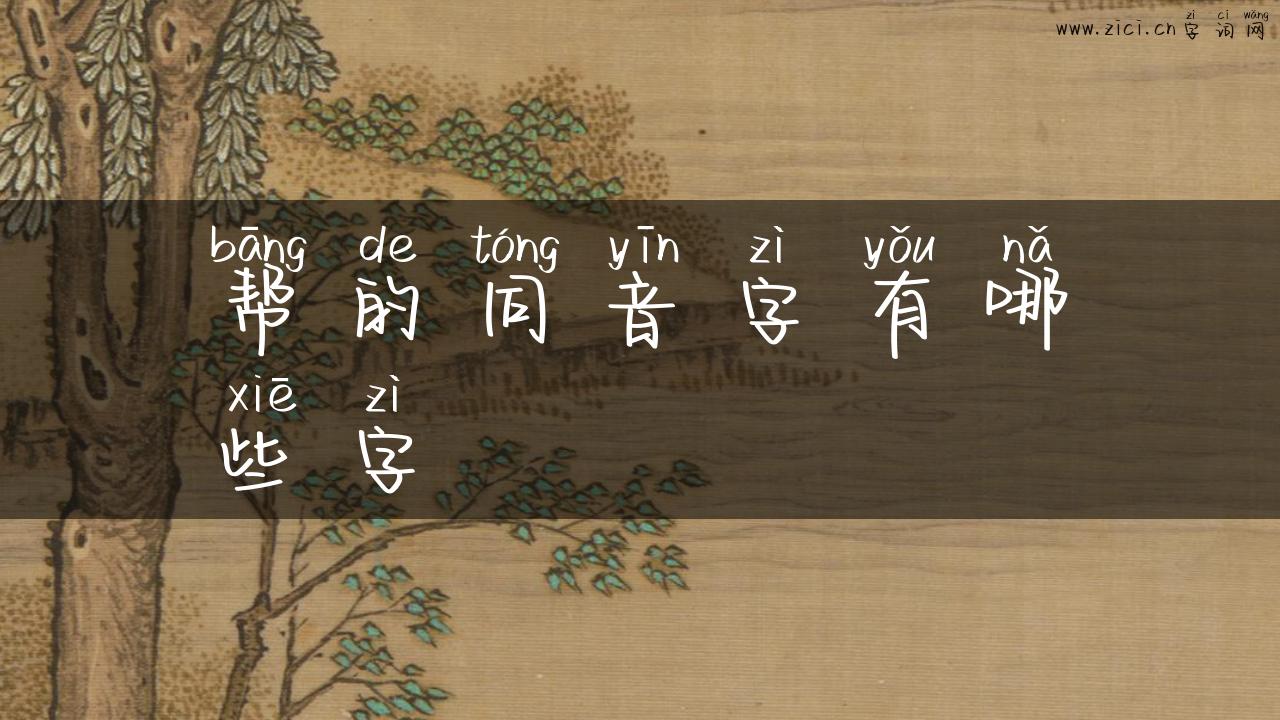 zì cí wǎng
www.zici.cn 字 词 网
bāng de tóng yīn zì yǒu nǎ
帮 的 同 音 字 有 哪
xiē zì
些 字